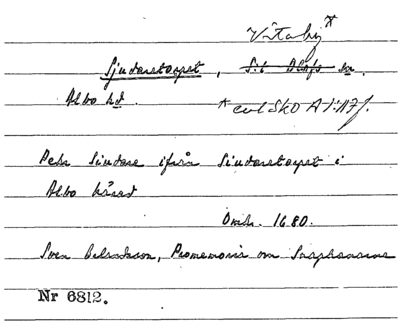 Vitaby *
Sjudaretorpet, S:t Olofs sn.
Albo hd.
* enl SKO A 1:117 f.
Pehr Siudare ifrån Siudaretorpet i
Albo härad
Omkr. 1680.
Sven Danielsson, Promemoria om Snapphanarne
Nr 6812.